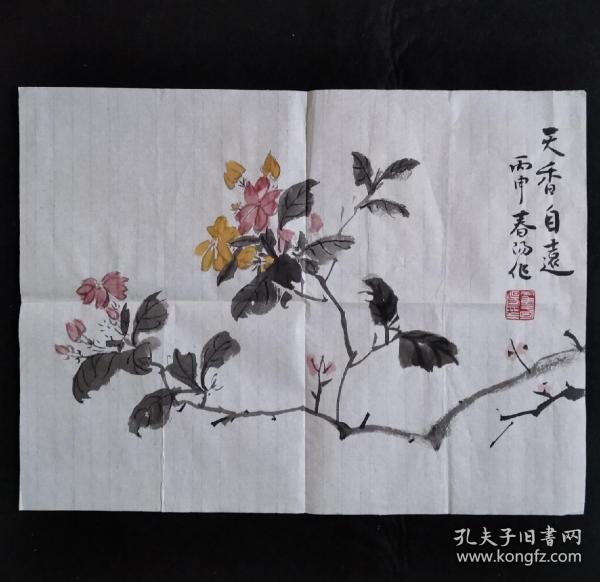 天香自遠
丙申春阳作
孔夫子旧书网
www.kongfz.com